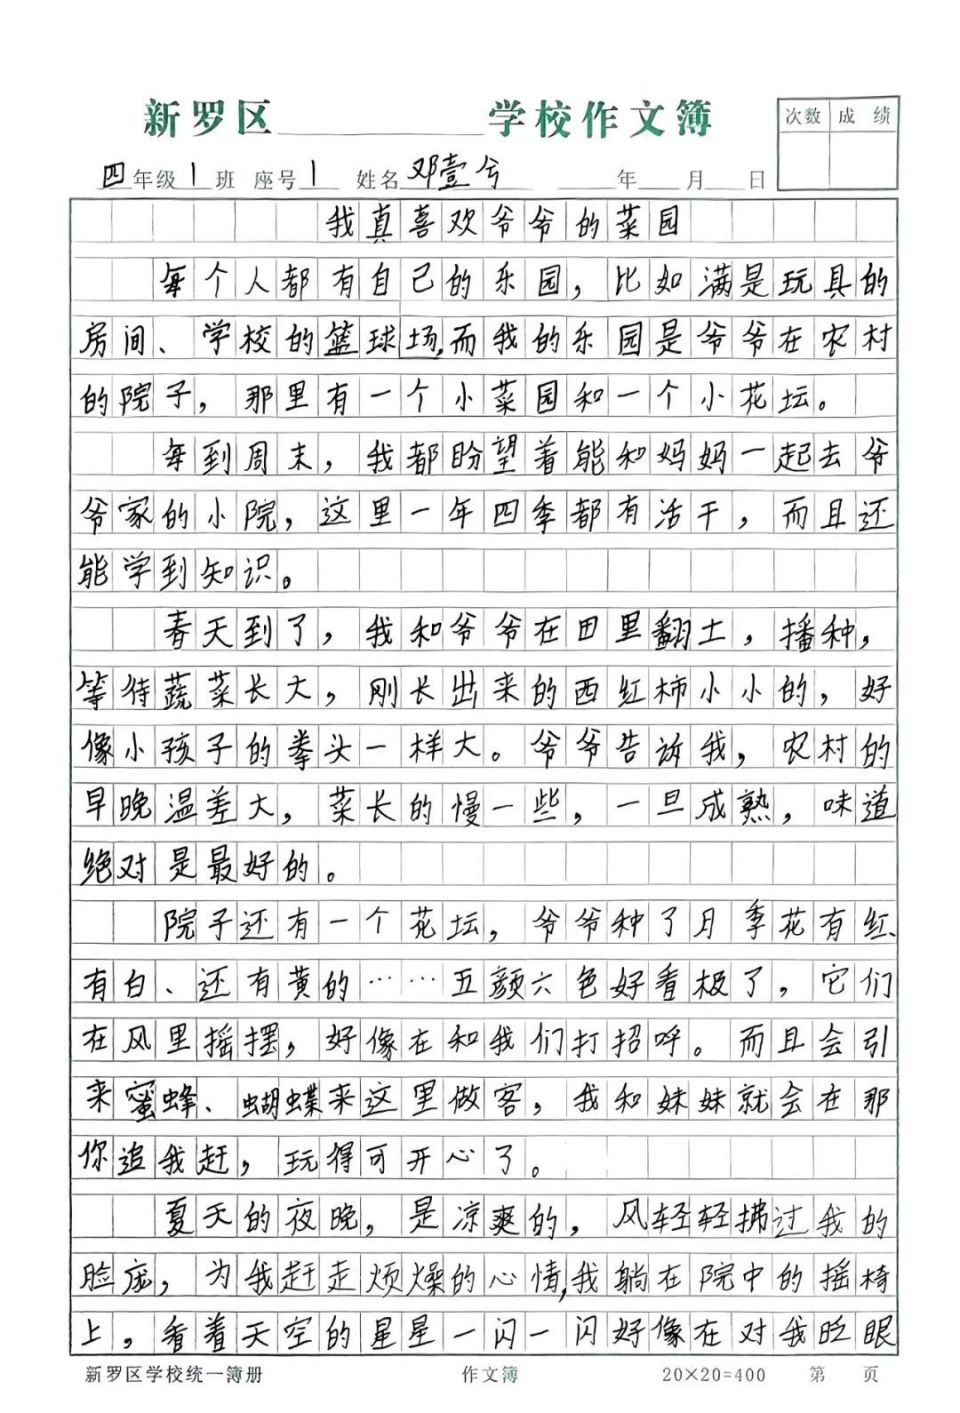 新罗区 学校作文簿
次数 成绩
四年级1班 座号1 姓名邓壹兮 年 月 日
我真喜欢爷爷的菜园
每个人都有自己的乐园，比如满是玩具的
房间、学校的篮球场，而我的乐园是爷爷在农村
的院子，那里有一个小菜园和一个小花坛。
每到周末，我都盼望着能和妈妈一起去爷
爷家的小院，这里一年四季都有活干，而且还
能学到知识。
春天到了，我和爷爷在田里翻土，播种，
等待蔬菜长大，刚长出来的西红柿小小的，好
像小孩子的拳头一样大。爷爷告诉我，农村的
早晚温差大，菜长的慢一些，一旦成熟，味道
绝对是最好的。
院子还有一个花坛，爷爷种了月季花有红、
有白、还有黄的……五颜六色好看极了，它们
在风里摇摆，好像在和我们打招呼。而且会引
来蜜蜂、蝴蝶来这里做客，我和妹妹就会在那
你追我赶，玩得可开心了。
夏天的夜晚，是凉爽的，风轻轻拂过我的
脸庞，为我赶走烦燥的心情，我躺在院中的摇椅
上，看着天空的星星一闪一闪好像在对我眨眼
新罗区学校统一簿册 作文簿 20×20=400 第 页